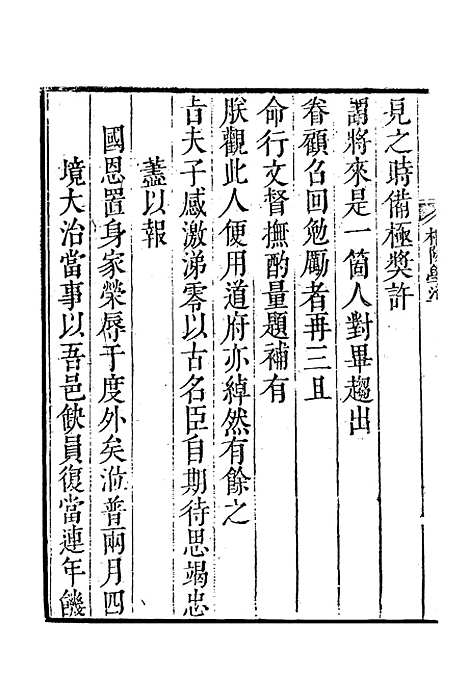 見之時備極獎許
謂將來是一箇人對畢趨出
眷顧召回勉勵者再三且
命行文督撫酌量題補有
朕觀此人便用道府亦綽然有餘之
旨夫子感激涕零以古名臣自期待思竭忠
藎以報
國恩置身家榮辱于度外矣涖普兩月四
境大治當事以吾邑缺員復當連年饑